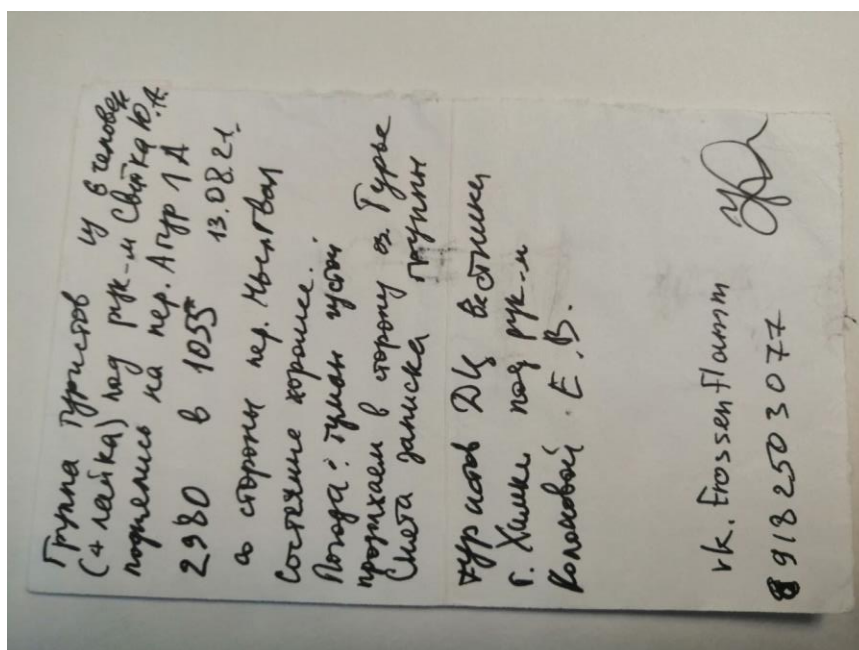 Группа туристов из 6 человек
(+ лайка) под рук-м Свитка Ю.А.
поднялись на пер. Агур 1А
2980 в 10 55 13.08.21.
со стороны пер.
Состояние хорошее.
Погода: туман густой
в сторону оз. Турье
Снята записка группы
туристов ДЦ Вестники
г. Химки под рук-м
Е.В.
vk. Frossenflamm
89182503077